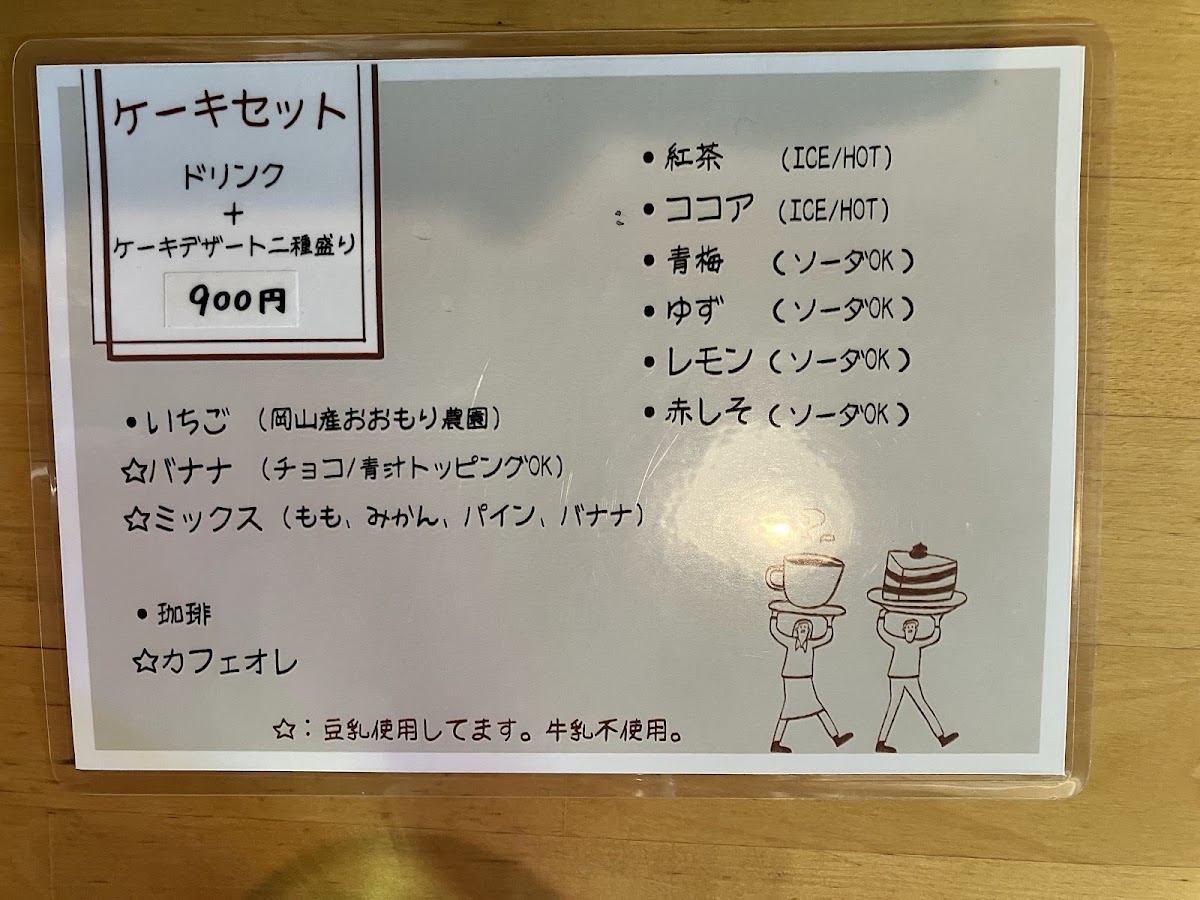 ケーキセット
ドリンク
+
ケーキデザート二種盛り
900円
•いちご (岡山産おおもり農園)
☆バナナ (チョコ/青汁トッピングOK)
☆ミックス (もも、みかん、パイン、バナナ)
•珈琲
☆カフェオレ
•紅茶 (ICE/HOT)
•ココア (ICE/HOT)
•青梅 (ソーダOK)
•ゆず (ソーダOK)
•レモン (ソーダOK)
•赤しそ (ソーダOK)
☆:豆乳使用してます。牛乳不使用。